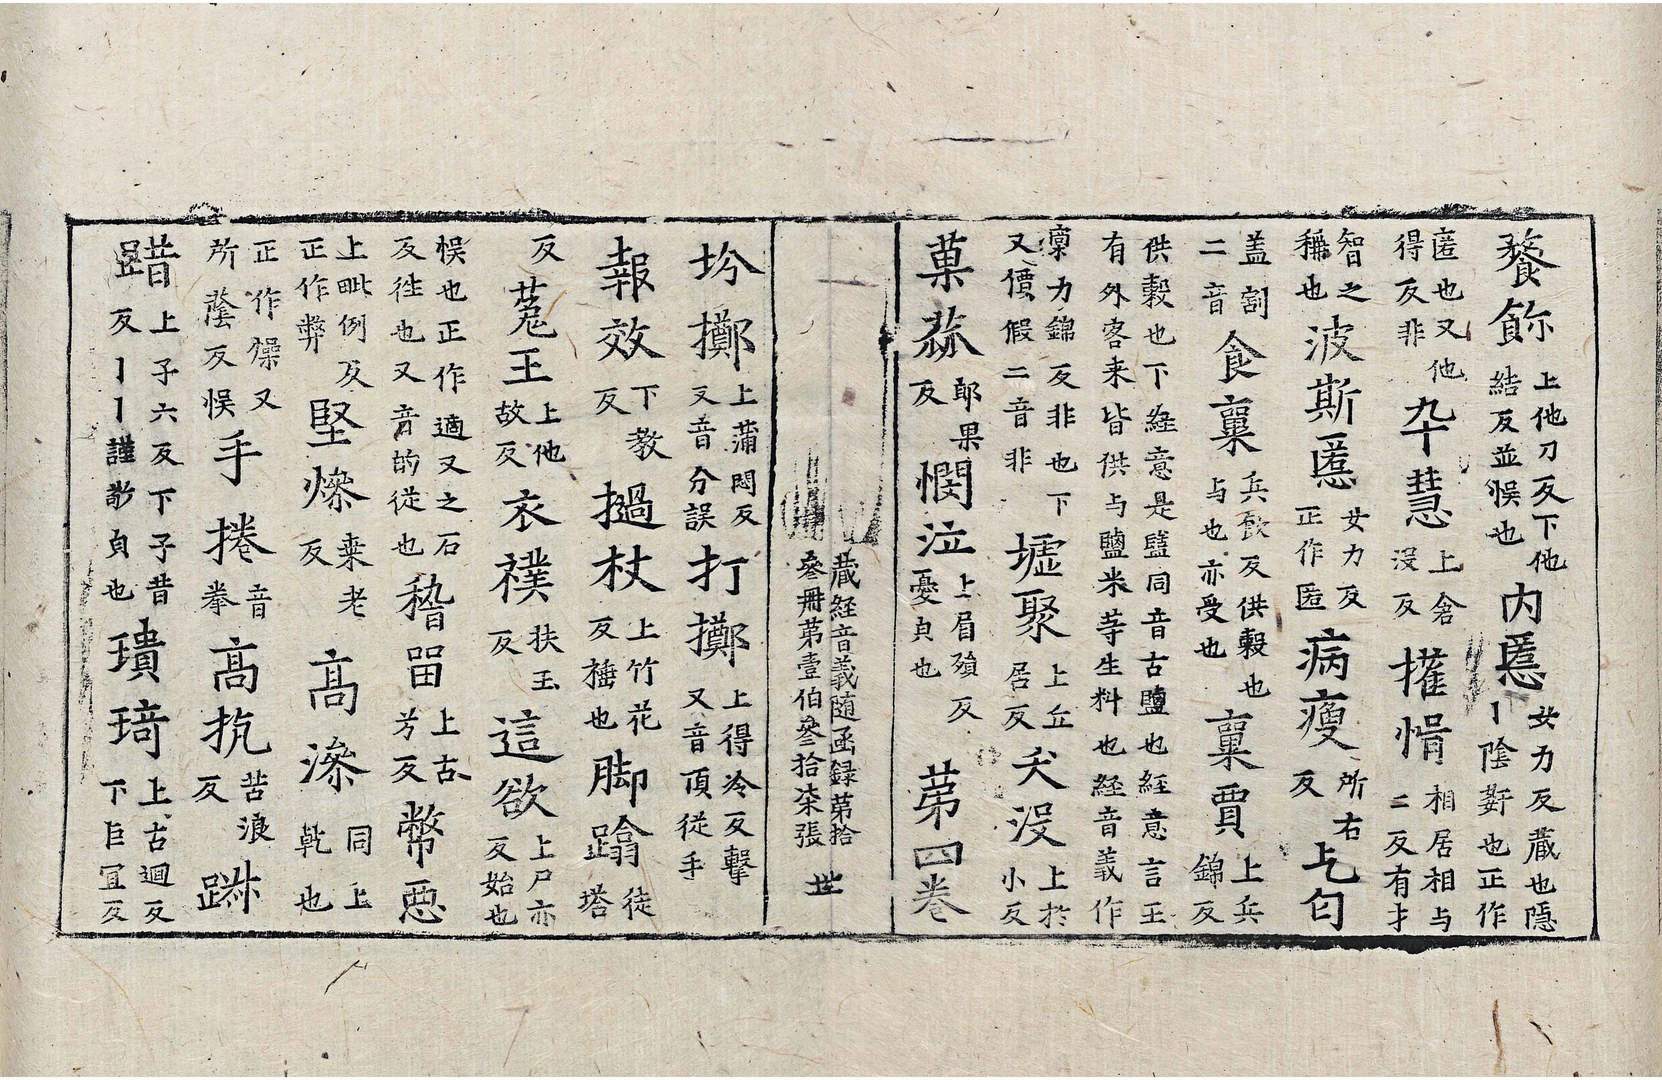 餮飻上他刀反下他結反並悮也内慝女力反藏也隱丨陰蔪也正作
匿也又他得反非卆慧上倉没反㩴惰相居相与二反有才
智之稱也波斯慝女力反正作匿病瘦所右反上乞匃
盖割二音食稟兵飲反供穀也与也亦受也稟賈上兵錦反
供穀也下経意是盬同音古盬也経意言王有外客来皆供与盬米䓁生料也経音義作
稟力錦反非也下又價假二音非墟聚上丘居反夭没上扵小反
菓蓏郎果反憫泣上眉殞反憂皃也苐四巻
藏経音義随函録苐拾
叅冊苐壹伯叅拾柒張 世
坋擲上蒲悶反又音分誤打擲上得冷反擊又音頂從手
報效下教反撾杖上竹花反棰也脚蹹徒塔
反菟王上他故反衣襆扶玉反這欲上尸亦反始也
悮也正作適又之石反徃也又音的從也稽留上古芳反幣惡
上毗例反正作弊堅燥桒老反高㵕同上乾也
正作燥又所蔭反悮手捲音拳高抗苦浪反踧
踖上子六反下子昔反丨丨謹敬皃也瓌琦上古迴反下巨冝反